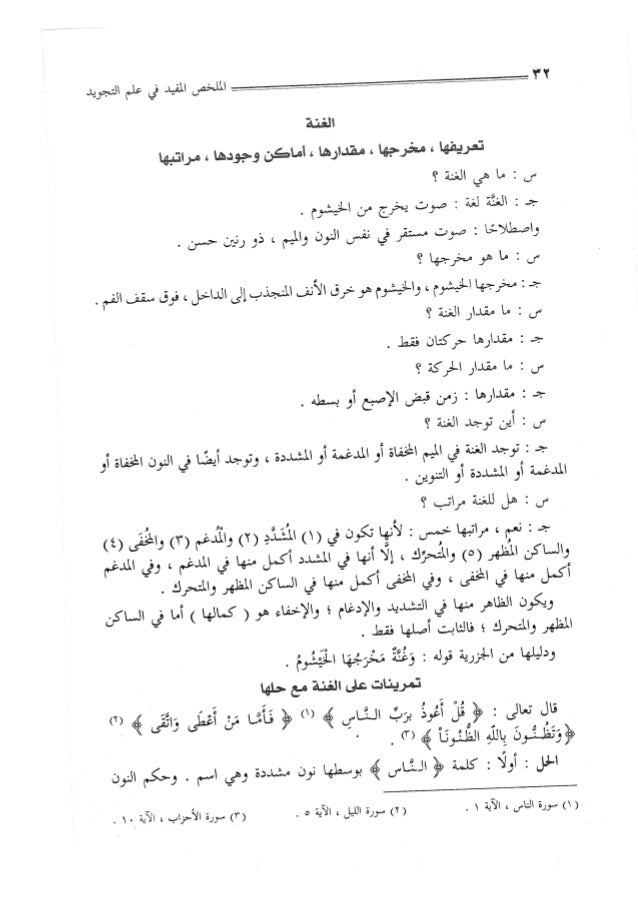 ٣٢
الملخص المفيد في علم التجويد
الغنة
تعريفها ، مخرجها ، مقدارها ، أماكن وجودها ، مراتبها
س : ما هي الغنة ؟
جـ : الغنَّة لغة : صوت يخرج من الخيشوم .
واصطلاحًا : صوت مستقر في نفس النون والميم ، ذو رنين حسن .
س : ما هو مخرجها ؟
جـ : مخرجها الخيشوم ، والخيشوم هو خرق الأنف المنجذب إلى الداخل ، فوق سقف الفم .
س : ما مقدار الغنة ؟
جـ : مقدارها حركتان فقط .
س : ما مقدار الحركة ؟
جـ : مقدارها : زمن قبض الإصبع أو بسطه .
س : أين توجد الغنة ؟
جـ : توجد الغنة في الميم المخفاة أو المدغمة أو المشددة ، وتوجد أيضًا في النون المخفاة أو
المدغمة أو المشددة أو التنوين .
س : هل للغنة مراتب ؟
جـ : نعم ، مراتبها خمس : لأنها تكون في (١) المُشَدَّدِ (٢) والمُدغم (٣) والمُخفَى (٤)
والساكن المُظهر (٥) والمتحرِّك ، إلَّا أنها في المشدد أكمل منها في المدغم ، وفي المدغم
أكمل منها في المخفى ، وفي المخفى أكمل منها في الساكن المظهر والمتحرك .
ويكون الظاهر منها في التشديد والإدغام ؛ والإخفاء هو ( كمالها ) أما في الساكن
المظهر والمتحرك ؛ فالثابت أصلها فقط .
ودليلها من الجزرية قوله : وَغُنَّةٌ مَخْرَجُهَا الْخَيْشُومُ .
تمرينات على الغنة مع حلها
قال تعالى : ﴿ قُلْ أَعُوذُ بِرَبِّ النَّاسِ ﴾ (١) ﴿ فَأَمَّا مَنْ أَعْطَى وَاتَّقَى ﴾ (٢)
﴿ وَتَظُنُّونَ بِاللَّهِ الظُّنُونَا ﴾ (٣) .
الحل : أولًا : كلمة ﴿ النَّاس ﴾ بوسطها نون مشددة وهي اسم . وحكم النون
(١) سورة الناس ، الآية ١ . (٢) سورة الليل ، الآية ٥ . (٣) سورة الأحزاب ، الآية ١٠ .